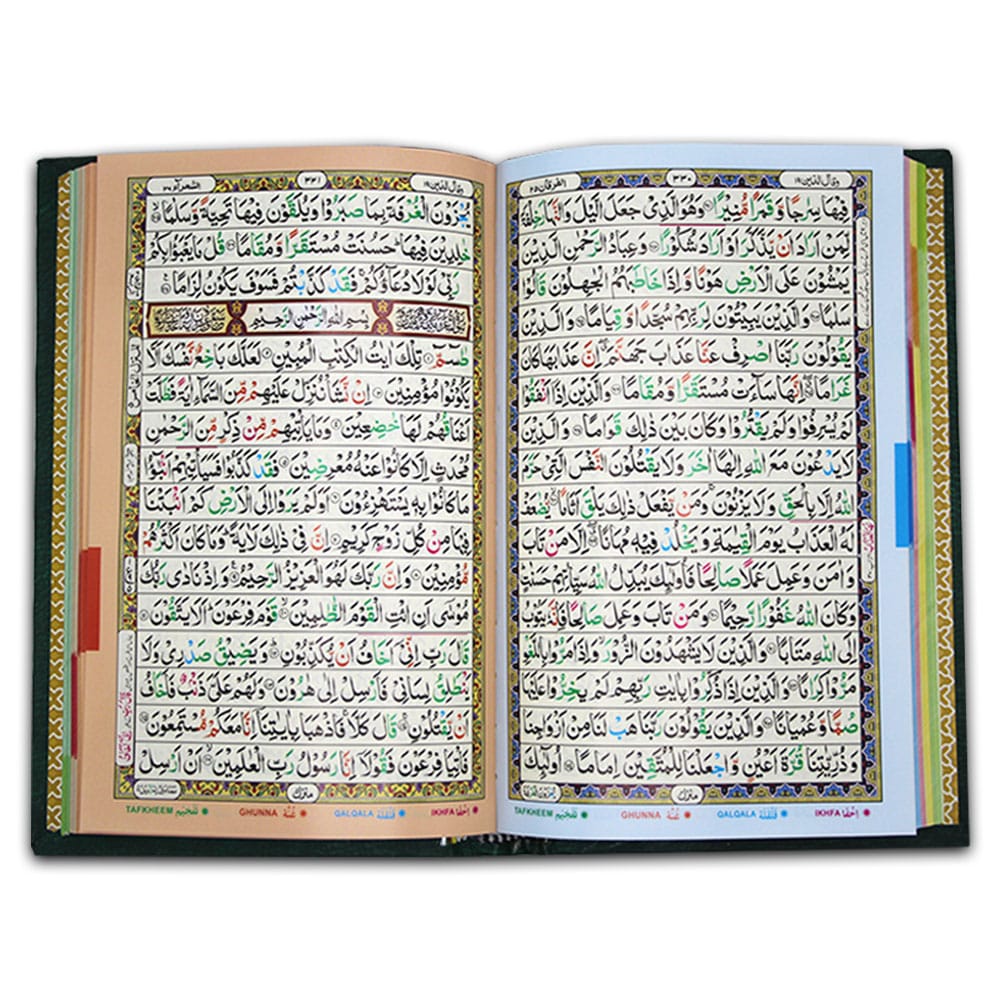 وقال الذين ١٩ ٣٣٠ الفرقان ٢٥
فِيْهَا سِرٰجًا وَّ قَمَرًا مُّنِيْرًا ۝ وَهُوَ الَّذِيْ جَعَلَ الَّيْلَ وَالنَّهَارَ خِلْفَةً
لِّمَنْ اَرَادَ اَنْ يَّذَّكَّرَ اَوْ اَرَادَ شُكُوْرًا ۝ وَعِبَادُ الرَّحْمٰنِ الَّذِيْنَ
يَمْشُوْنَ عَلَى الْاَرْضِ هَوْنًا وَّ اِذَا خَاطَبَهُمُ الْجٰهِلُوْنَ قَالُوْا
سَلٰمًا ۝ وَالَّذِيْنَ يَبِيْتُوْنَ لِرَبِّهِمْ سُجَّدًا وَّ قِيَامًا ۝ وَالَّذِيْنَ
يَقُوْلُوْنَ رَبَّنَا اصْرِفْ عَنَّا عَذَابَ جَهَنَّمَ ۖ اِنَّ عَذَابَهَا كَانَ
غَرَامًا ۝ اِنَّهَا سَآءَتْ مُسْتَقَرًّا وَّ مُقَامًا ۝ وَالَّذِيْنَ اِذَآ اَنْفَقُوْا
لَمْ يُسْرِفُوْا وَلَمْ يَقْتُرُوْا وَكَانَ بَيْنَ ذٰلِكَ قَوَامًا ۝ وَالَّذِيْنَ
لَا يَدْعُوْنَ مَعَ اللّٰهِ اِلٰهًا اٰخَرَ وَلَا يَقْتُلُوْنَ النَّفْسَ الَّتِيْ حَرَّمَ
اللّٰهُ اِلَّا بِالْحَقِّ وَلَا يَزْنُوْنَ ۚ وَمَنْ يَّفْعَلْ ذٰلِكَ يَلْقَ اَثَامًا ۝ يُّضٰعَفْ
لَهُ الْعَذَابُ يَوْمَ الْقِيٰمَةِ وَيَخْلُدْ فِيْهٖ مُهَانًا ۝ اِلَّا مَنْ تَابَ
وَ اٰمَنَ وَعَمِلَ عَمَلًا صَالِحًا فَاُولٰٓئِكَ يُبَدِّلُ اللّٰهُ سَيِّاٰتِهِمْ حَسَنٰتٍ
وَكَانَ اللّٰهُ غَفُوْرًا رَّحِيْمًا ۝ وَمَنْ تَابَ وَعَمِلَ صَالِحًا فَاِنَّهٗ يَتُوْبُ
اِلَى اللّٰهِ مَتَابًا ۝ وَالَّذِيْنَ لَا يَشْهَدُوْنَ الزُّوْرَ ۙ وَاِذَا مَرُّوْا بِاللَّغْوِ
مَرُّوْا كِرَامًا ۝ وَالَّذِيْنَ اِذَا ذُكِّرُوْا بِاٰيٰتِ رَبِّهِمْ لَمْ يَخِرُّوْا عَلَيْهَا
صُمًّا وَّ عُمْيَانًا ۝ وَالَّذِيْنَ يَقُوْلُوْنَ رَبَّنَا هَبْ لَنَا مِنْ اَزْوَاجِنَا
وَ ذُرِّيّٰتِنَا قُرَّةَ اَعْيُنٍ وَّ اجْعَلْنَا لِلْمُتَّقِيْنَ اِمَامًا ۝ اُولٰٓئِكَ
منزل
اخفا IKHFA قلقلة QALQALA غنّة GHUNNA تفخيم TAFKHEEM
وقال الذين ١٩ ٣٣١ الشعرآء ٢٦
يُجْزَوْنَ الْغُرْفَةَ بِمَا صَبَرُوْا وَيُلَقَّوْنَ فِيْهَا تَحِيَّةً وَّسَلٰمًا ۝
خٰلِدِيْنَ فِيْهَا ؕ حَسُنَتْ مُسْتَقَرًّا وَّ مُقَامًا ۝ قُلْ مَا يَعْبَؤُا بِكُمْ
رَبِّيْ لَوْلَا دُعَآؤُكُمْ ۚ فَقَدْ كَذَّبْتُمْ فَسَوْفَ يَكُوْنُ لِزَامًا ۝
بِسْمِ اللّٰهِ الرَّحْمٰنِ الرَّحِيْمِ
طٰسٓمّٓ ۝ تِلْكَ اٰيٰتُ الْكِتٰبِ الْمُبِيْنِ ۝ لَعَلَّكَ بَاخِعٌ نَّفْسَكَ اَلَّا
يَكُوْنُوْا مُؤْمِنِيْنَ ۝ اِنْ نَّشَاْ نُنَزِّلْ عَلَيْهِمْ مِّنَ السَّمَآءِ اٰيَةً فَظَلَّتْ
اَعْنَاقُهُمْ لَهَا خٰضِعِيْنَ ۝ وَمَا يَاْتِيْهِمْ مِّنْ ذِكْرٍ مِّنَ الرَّحْمٰنِ
مُحْدَثٍ اِلَّا كَانُوْا عَنْهُ مُعْرِضِيْنَ ۝ فَقَدْ كَذَّبُوْا فَسَيَاْتِيْهِمْ اَنْۢبٰٓؤُا
مَا كَانُوْا بِهٖ يَسْتَهْزِءُوْنَ ۝ اَوَلَمْ يَرَوْا اِلَى الْاَرْضِ كَمْ اَنْۢبَتْنَا
فِيْهَا مِنْ كُلِّ زَوْجٍ كَرِيْمٍ ۝ اِنَّ فِيْ ذٰلِكَ لَاٰيَةً ؕ وَمَا كَانَ اَكْثَرُهُمْ
مُّؤْمِنِيْنَ ۝ وَاِنَّ رَبَّكَ لَهُوَ الْعَزِيْزُ الرَّحِيْمُ ۝ وَاِذْ نَادٰى رَبُّكَ
مُوْسٰٓى اَنِ ائْتِ الْقَوْمَ الظّٰلِمِيْنَ ۝ قَوْمَ فِرْعَوْنَ ؕ اَلَا يَتَّقُوْنَ ۝
قَالَ رَبِّ اِنِّيْٓ اَخَافُ اَنْ يُّكَذِّبُوْنِ ۝ وَيَضِيْقُ صَدْرِيْ وَلَا
يَنْطَلِقُ لِسَانِيْ فَاَرْسِلْ اِلٰى هٰرُوْنَ ۝ وَلَهُمْ عَلَيَّ ذَنْۢبٌ فَاَخَافُ
اَنْ يَّقْتُلُوْنِ ۝ قَالَ كَلَّا ۚ فَاذْهَبَا بِاٰيٰتِنَآ اِنَّا مَعَكُمْ مُّسْتَمِعُوْنَ ۝
فَاْتِيَا فِرْعَوْنَ فَقُوْلَآ اِنَّا رَسُوْلُ رَبِّ الْعٰلَمِيْنَ ۝ اَنْ اَرْسِلْ
منزل
اخفا IKHFA قلقلة QALQALA غنّة GHUNNA تفخيم TAFKHEEM